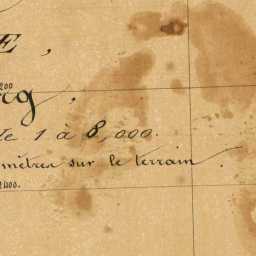 E,
200
rg,
de 1 à 8,000.
mètres sur le terrain.
400.